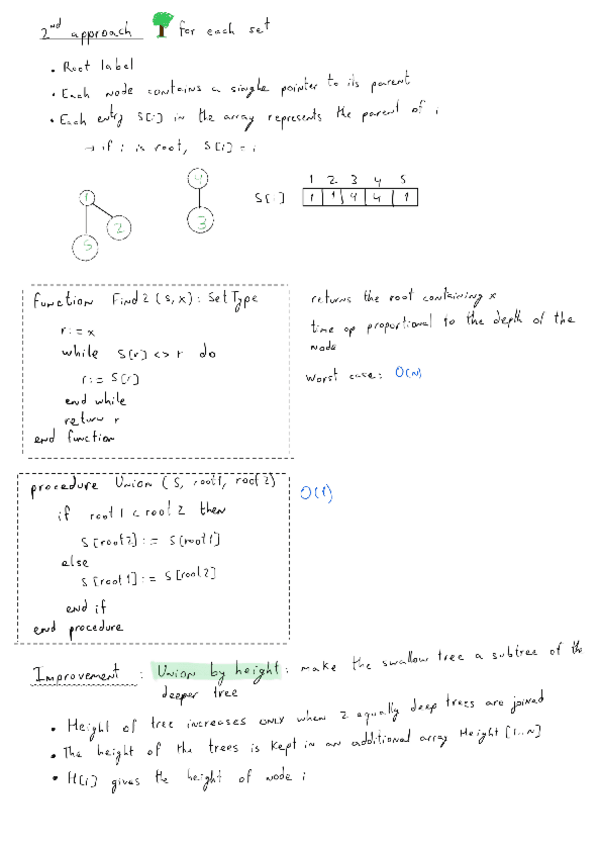 2nd approach for each set
• Root label
• Each node contains a single pointer to its parent
• Each entry S[i] in the array represents the parent of i
→ if i is root, S[i] = i
1 2 5
4 3
1 2 3 4 5
S[i] 1 1 4 4 1
function Find2 (S, x) : SetType
r := x
while S[r] <> r do
r := S[r]
end while
return r
end function
returns the root containing x
time op proportional to the depth of the
node
Worst case: O(n)
procedure Union (S, root1, root2)
if root1 < root2 then
S[root2] := S[root1]
else
S[root1] := S[root2]
end if
end procedure
O(1)
Improvement : Union by height : make the swallow tree a subtree of the
deeper tree
• Height of tree increases only when 2 equally deep trees are joined
• The height of the trees is kept in an additional array Height [1..N]
• H[i] gives the height of node i